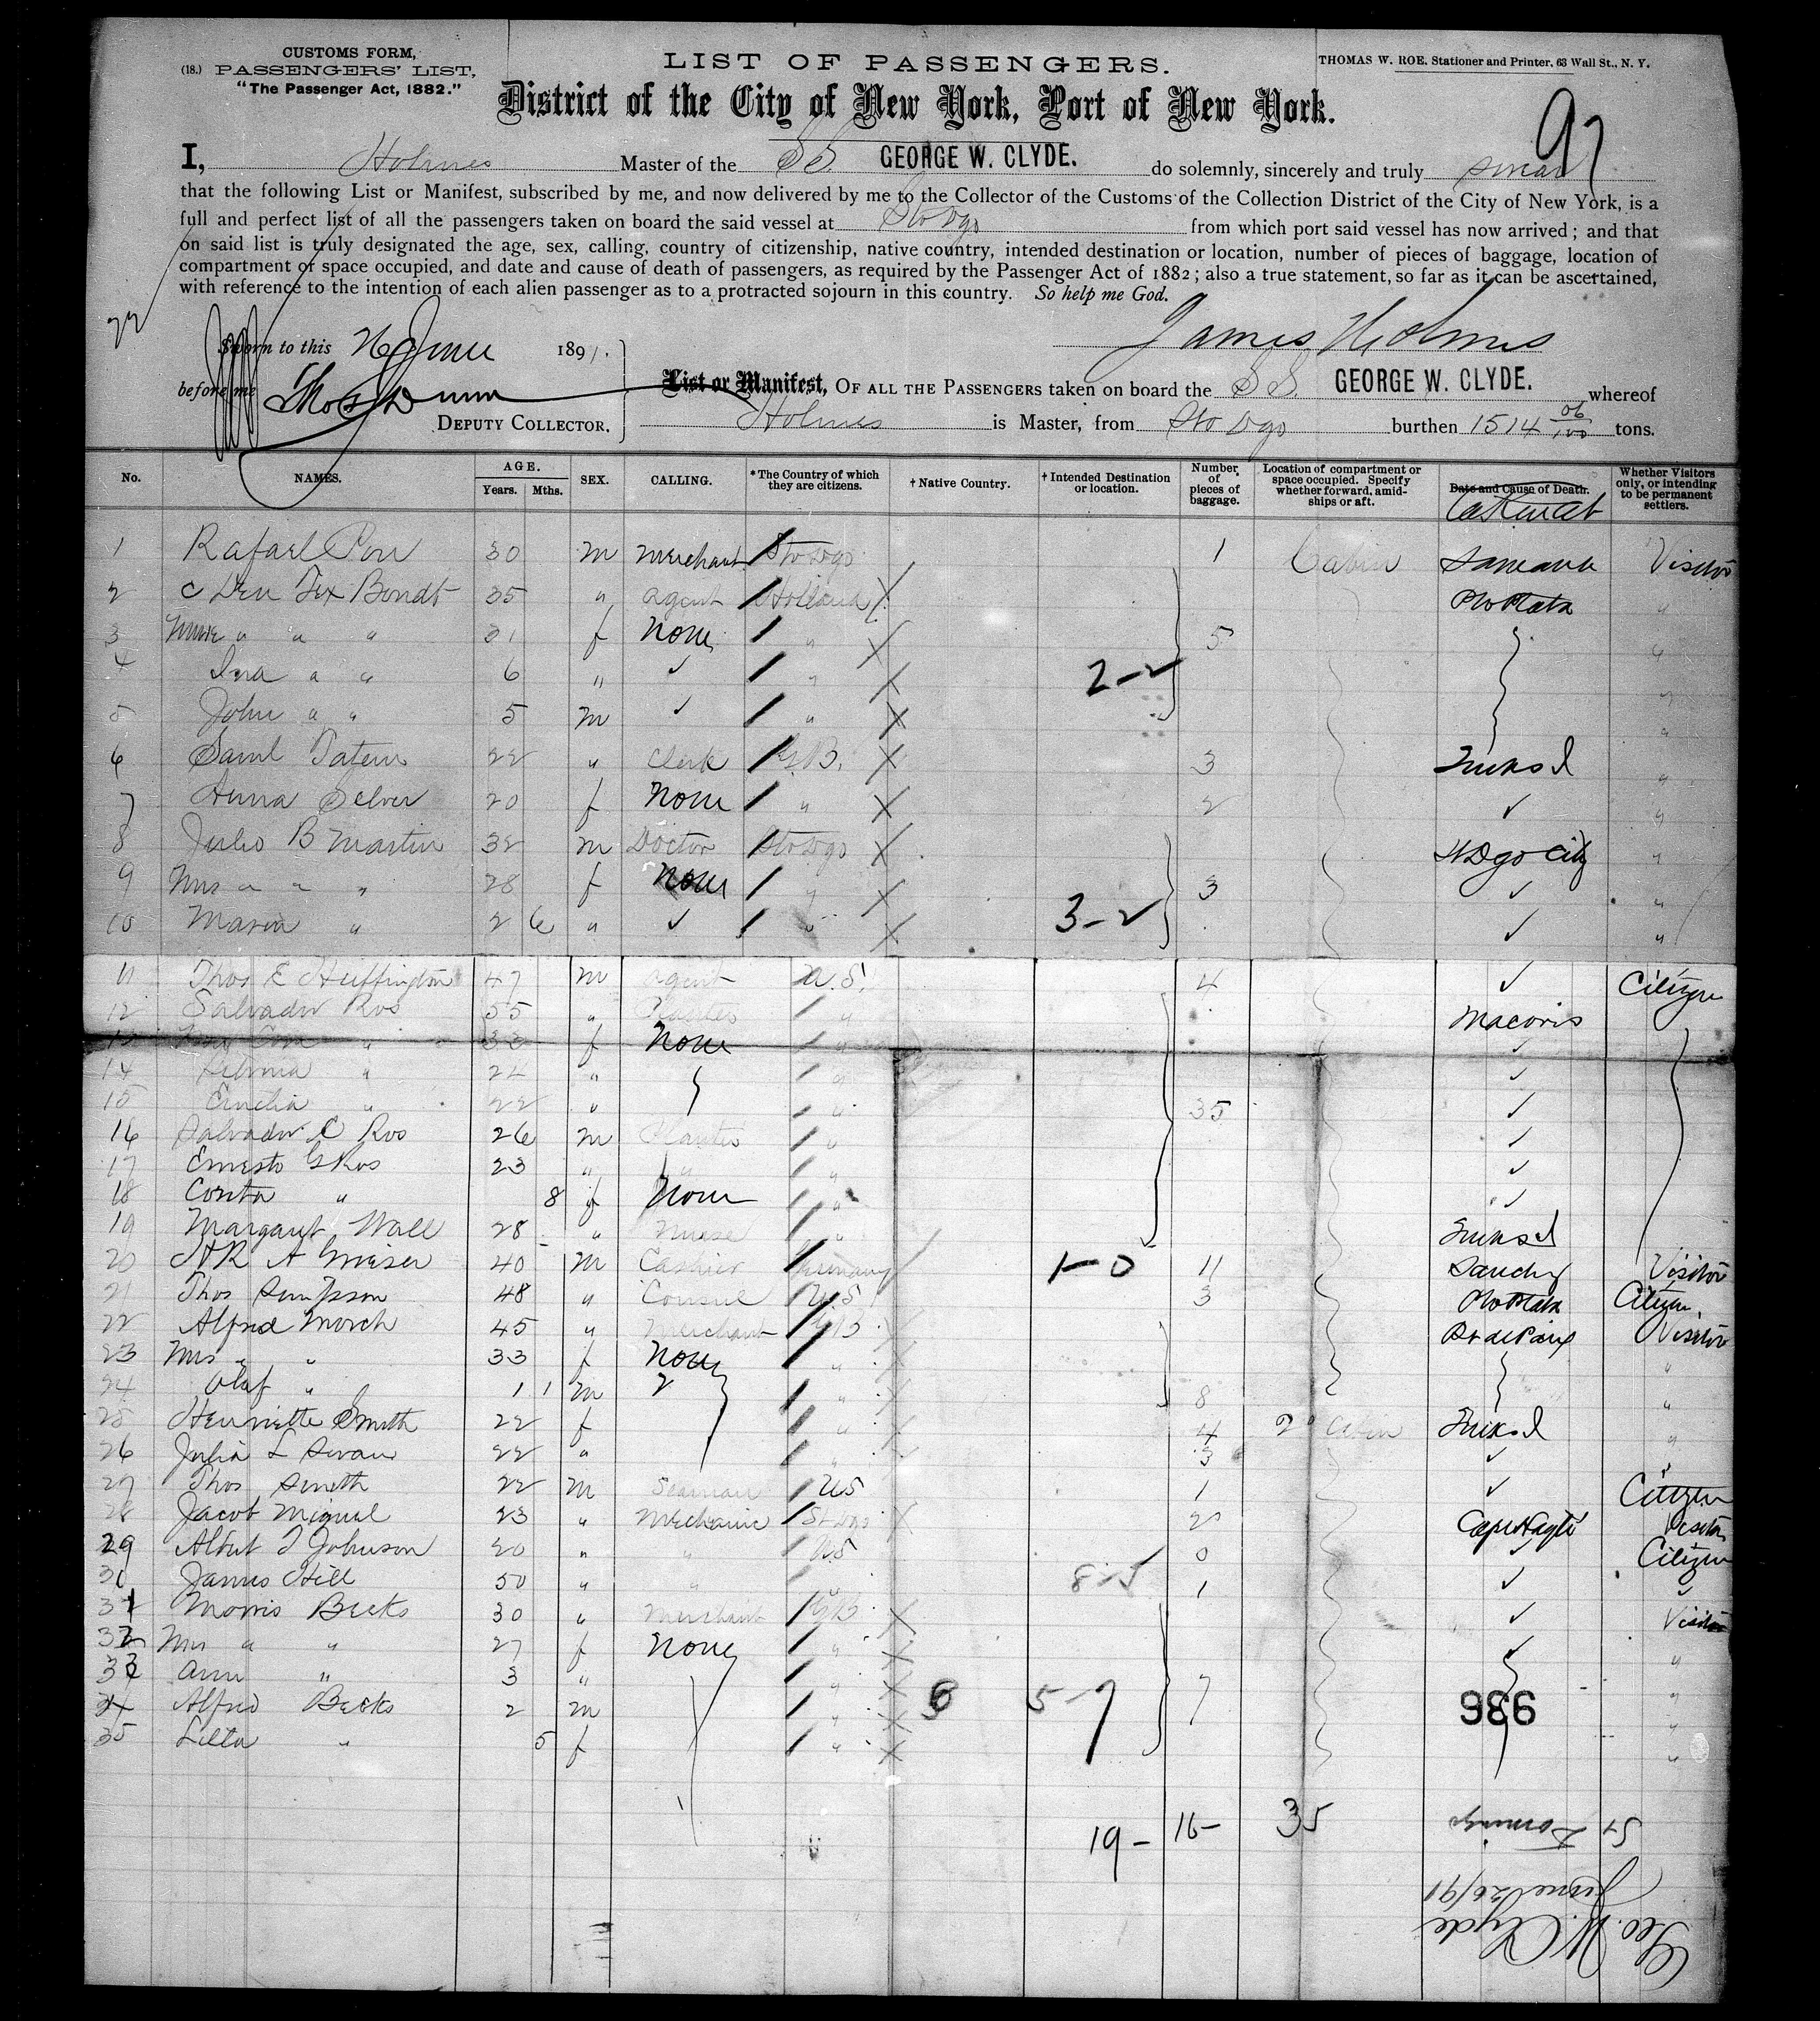 CUSTOMS FORM,
(18.) PASSENGERS' LIST,
"The Passenger Act, 1882."
LIST OF PASSENGERS.
THOMAS W. ROE, Stationer and Printer, 63 Wall St., N. Y.
District of the City of New York, Port of New York.
97
I, Holmes Master of the SS. GEORGE W. CLYDE. do solemnly, sincerely and truly swear
that the following List or Manifest, subscribed by me, and now delivered by me to the Collector of the Customs of the Collection District of the City of New York, is a
full and perfect list of all the passengers taken on board the said vessel at Sto Dgo from which port said vessel has now arrived; and that
on said list is truly designated the age, sex, calling, country of citizenship, native country, intended destination or location, number of pieces of baggage, location of
compartment or space occupied, and date and cause of death of passengers, as required by the Passenger Act of 1882; also a true statement, so far as it can be ascertained,
with reference to the intention of each alien passenger as to a protracted sojourn in this country. So help me God.
James Holmes
Sworn to this 26 June 1891.
before me Thos Dunn
DEPUTY COLLECTOR.
List or Manifest, OF ALL THE PASSENGERS taken on board the SS. GEORGE W. CLYDE. whereof
Holmes is Master, from Sto Dgo burthen 1514 06/100 tons.
No. NAMES. AGE. Years. Mths. SEX. CALLING. *The Country of which they are citizens. † Native Country. † Intended Destination or location. Number of pieces of baggage. Location of compartment or space occupied. Specify whether forward, amidships or aft. Date and Cause of Death. Whether Visitors only, or intending to be permanent settlers.
1 Rafael Pou 30 m merchant Sto Dgo 1 Cabin Samana Visitor
2 C Den Tex Bondt 35 " agent Holland X Pto Plata "
3 Mme " " " 31 f None " X 5 "
4 Ina " " 6 " ✓ " X 2-2 "
5 John " " 5 m ✓ " X "
6 Saml Tatem 22 " Clerk G.B. X 3 Turks I "
7 Anna Selver 20 f None " X 2 ✓ "
8 Julio B Martin 32 m Doctor Sto Dgo X St Dgo City "
9 Mrs " " " 28 f None " X 3 ✓ "
10 Maria " 2 6 " ✓ " X 3-2 ✓ "
11 Thos E Huffington 47 m agent U.S. 4 ✓ Citizen
12 Salvador Ros 55 " Planter " Macoris
13 " 33 f None " ✓
14 " 22 " " ✓
15 Emelia " 22 " " 35 ✓
16 Salvador C Ros 26 m Planter " ✓
17 Ernesto G Ros 23 " " " ✓
18 " 8 f None " ✓
19 Margaret Wall 28 " Nurse " Turks I
20 40 m Cashier Germany 1-0 11 Visitor
21 Thos Simpson 48 " Consul U.S. 3 Pto Plata Citizen.
22 Alfred Morch 45 " merchant G B X Visitor
23 Mrs " " 33 f None " X "
24 Olaf " 1 1 m " X 8 "
25 Henriette Smith 22 f " X 4 2 Cabin Turks I "
26 Julia L Swan 22 " " 3 ✓ "
27 Thos Smith 22 m Seaman US 1 ✓ Citizen
28 Jacob Miguel 23 " Mechanic St Dgo X 2 Cape Hayti Visitor
29 Albert J Johnson 20 " " US 0 ✓ Citizen
30 James Hill 50 " " " 8-5 1 ✓ "
31 Morris Becks 30 " Merchant G B X ✓ Visitor
32 Mrs " " 27 f None " X ✓ "
33 Ann " 3 " " X 7 "
34 Alfred Becks 2 m " X 5-7 "
35 " 5 f " X "
936
19- 16- 35
St Domingo
June 26/91
Geo. W. Clyde